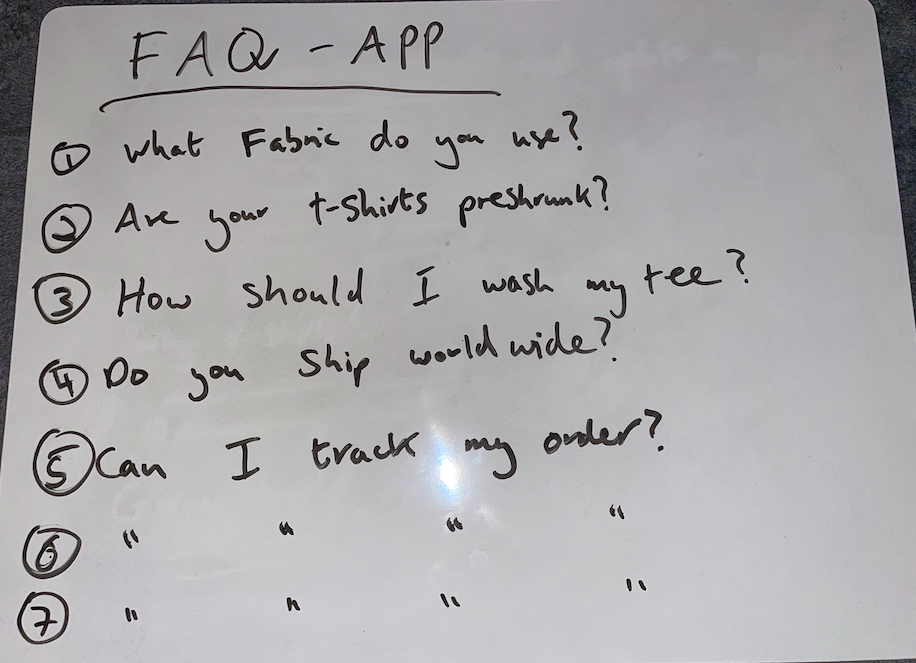 FAQ - APP
① What Fabric do you use?
② Are your t-shirts preshrunk?
③ How should I wash my tee?
④ Do you Ship worldwide?
⑤ Can I track my order?
⑥ " " " "
⑦ " " " "